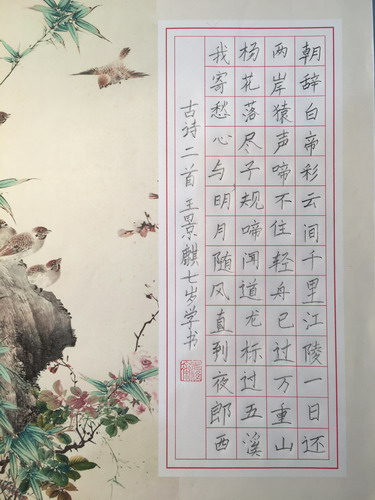 朝辞白帝彩云间千里江陵一日还
两岸猿声啼不住轻舟已过万重山
杨花落尽子规啼闻道龙标过五溪
我寄愁心与明月随风直到夜郎西
古诗二首王景麒七岁学书